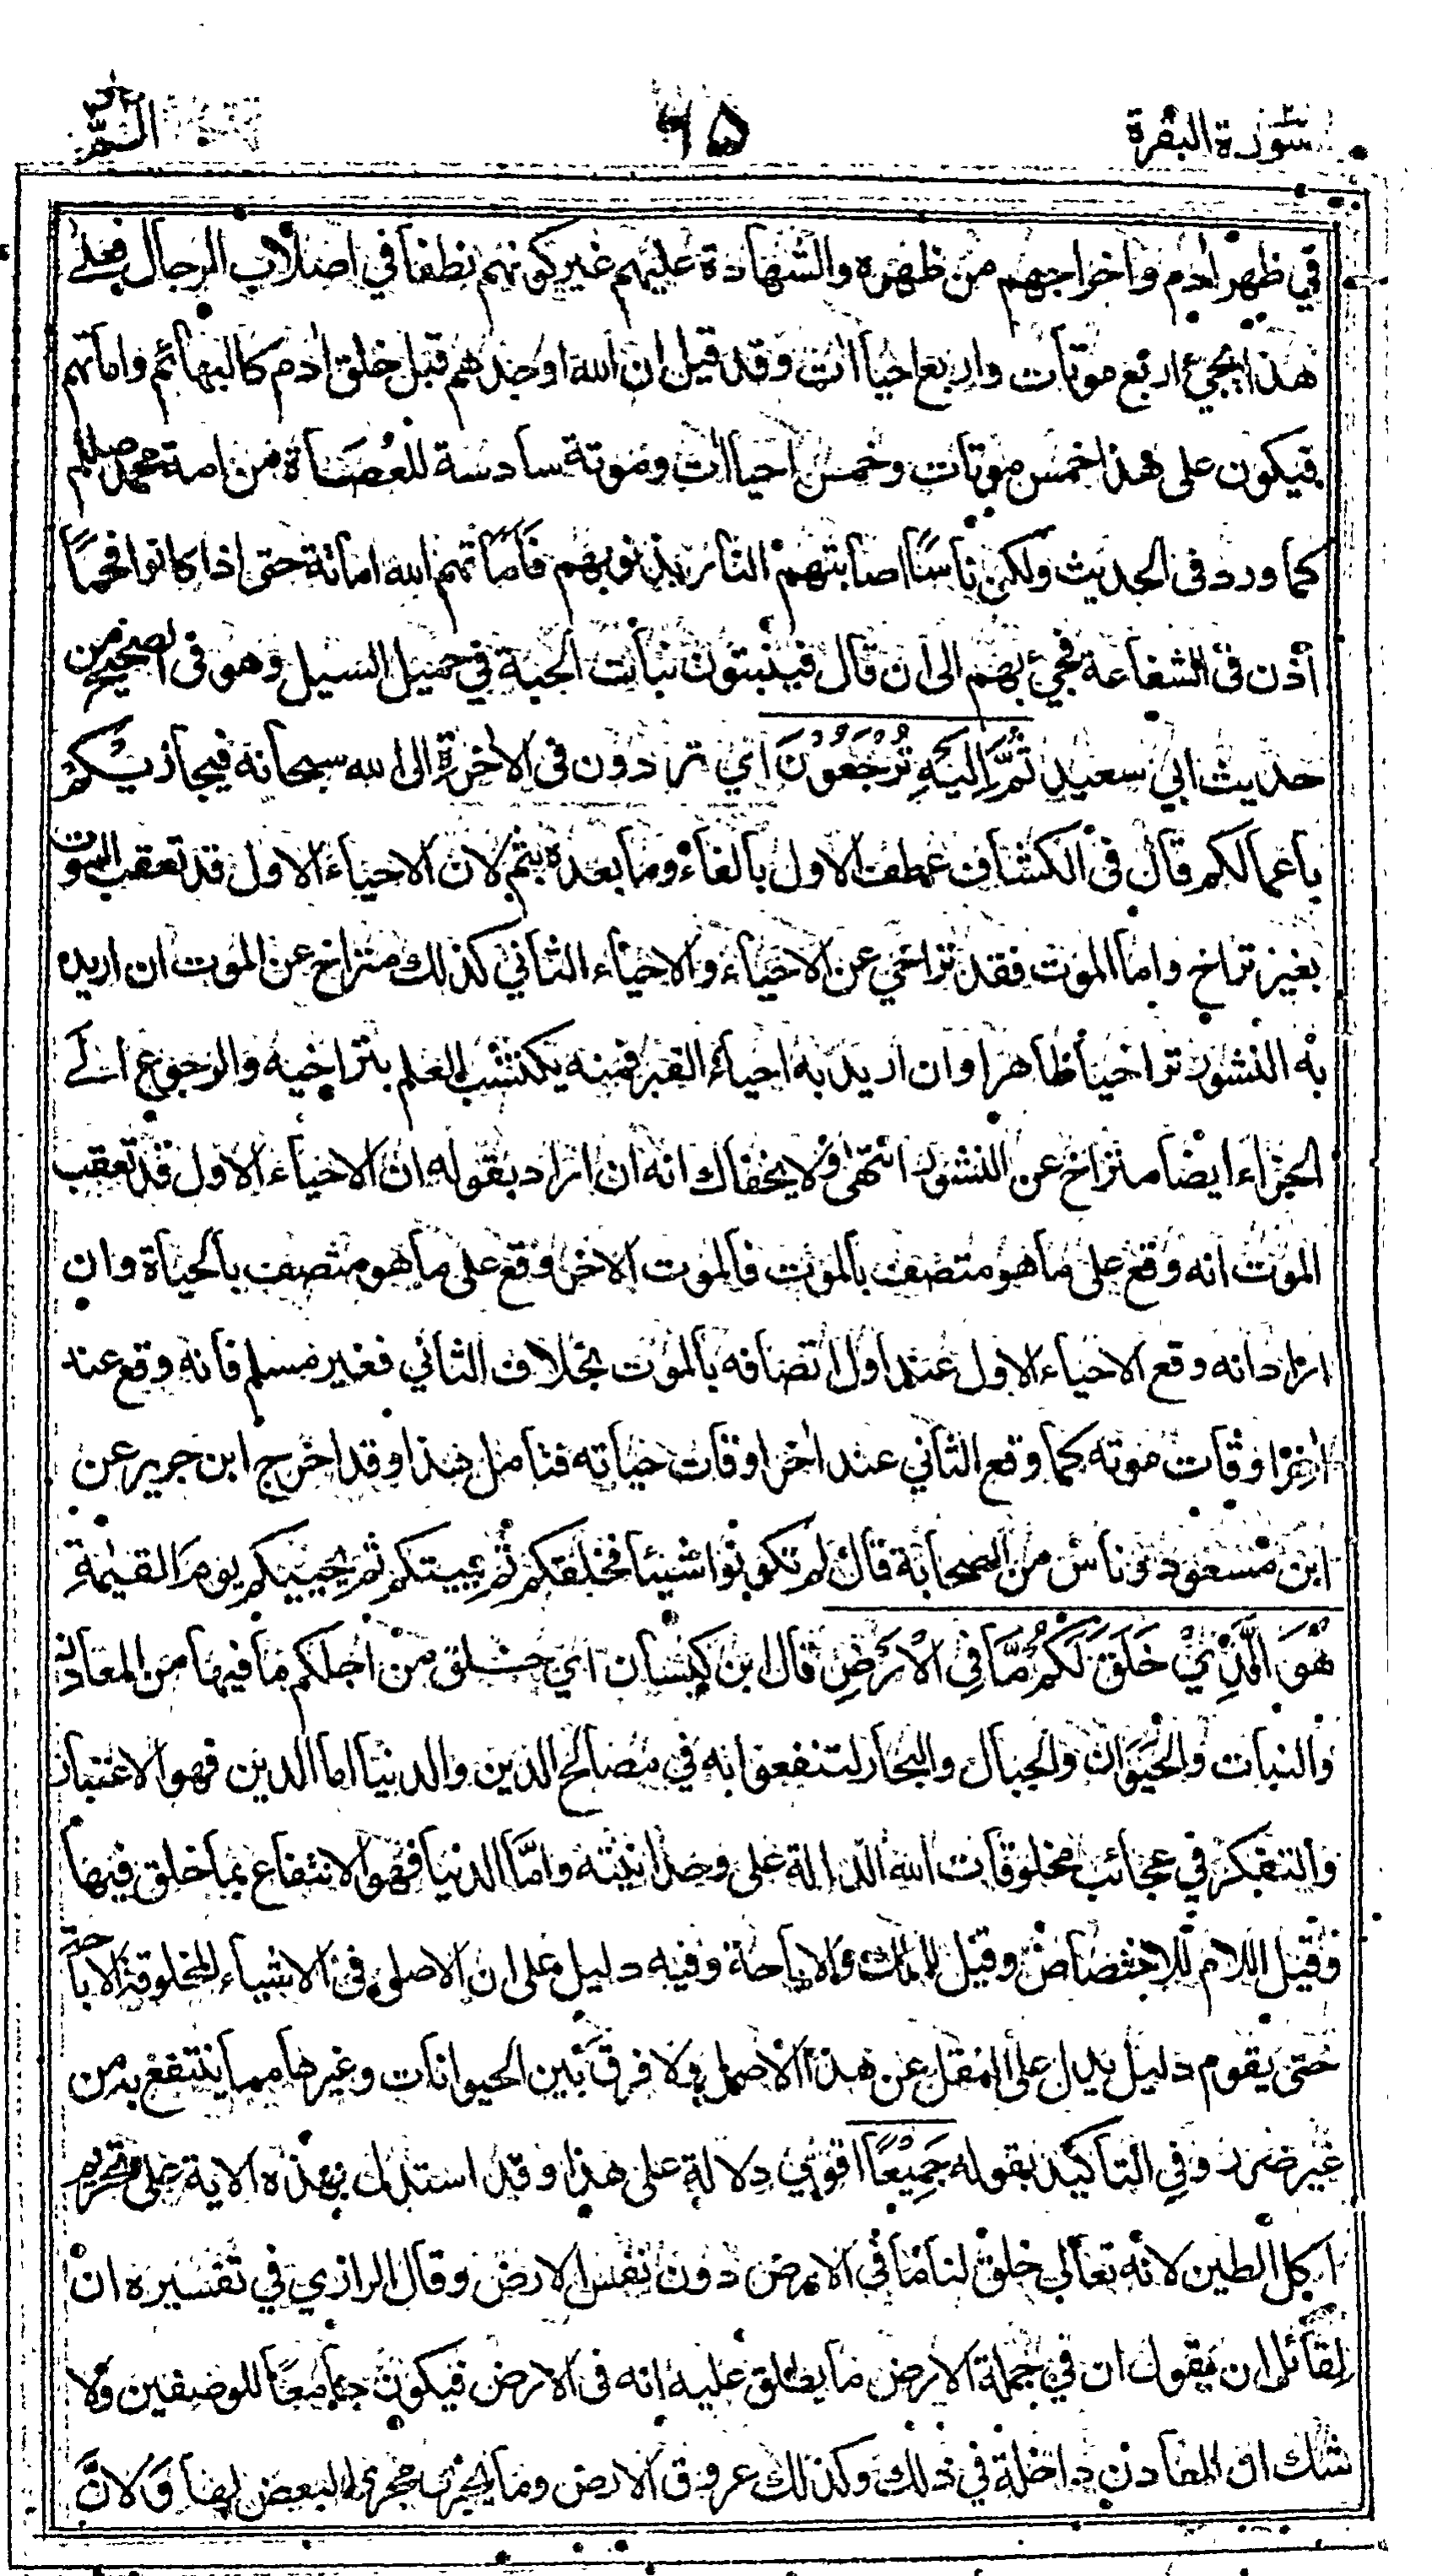 سورة البقرة
٦٥
الٓمّٓ
في ظهر اٰدم واخراجهم من ظهره والشهادة عليهم غير كونهم نطفا في اصلاب الرجال فعلے
هذا يجيء اربع موتات واربع احياآت وقد قيل ان الله اوجدهم قبل خلق اٰدم كالبهائم واماتهم
فيكون على هذا خمس موتات وخمس احياآت وموتة سادسة للعصاة من امة محمد صللم
كما ورد فى الحديث ولكن ناسًا اصابتهم النار بذنوبهم فأماتهم الله اماتة حتى اذا كانوا فحمًا
أذن فى الشفاعة فجيء بهم الى ان قال فينبتون نبات الحبة في حميل السيل وهو فى الصحيح من
حديث ابي سعيد ثُمَّ اِلَيْهِ تُرْجَعُوْنَ اي تردون فى الاٰخرة الى الله سبحانه فيجازيكم
باعمالكم قال فى الكشاف عطف الاول بالفاء وما بعده بثم لان الاحياء الاول قد تعقب الموت
بغير تراخ واما الموت فقد تراخي عن الاحياء والاحياء الثاني كذلك متراخ عن الموت ان اريد
به النشور تراخيا ظاهرا وان اريد به احياء القبر فمنه يكتسب العلم بتراخيه والرجوع الے
الجزاء ايضا متراخ عن النشور انتهى ولا يخفاك انه ان اراد بقوله ان الاحياء الاول قد تعقب
الموت انه وقع على ما هو متصف بالموت فالموت الاٰخر وقع على ما هو متصف بالحياة وان
اراد انه وقع الاحياء الاول عند اول اتصافه بالموت بخلاف الثاني فغير مسلم فانه وقع عند
اٰخر اوقات موته كما وقع الثاني عند اٰخر اوقات حياته فتأمل هذا وقد اخرج ابن جرير عن
ابن مسعود وناس من الصحابة قال لم تكونوا شيئا فخلقكم ثم يميتكم ثم يحييكم يوم القيٰمة
هُوَ الَّذِيْ خَلَقَ لَكُمْ مَّا فِي الْاَرْضِ قال ابن كيسان اي خلق من اجلكم ما فيها من المعادن
والنبات والحيوان والجبال والبحار لتنفعوا به في مصالح الدين والدنيا اما الدين فهو الاعتبار
والتفكر في عجائب مخلوقات الله الدالة على وحدانيته وامّا الدنيا فهو الانتفاع بما خلق فيها
وقيل اللام للاختصاص وقيل للملك والاباحة وفيه دليل على ان الاصل فى الاشياء المخلوقة الاباحة
حتى يقوم دليل يدل على النقل عن هذا الاصل ولا فرق بين الحيوانات وغيرها مما ينتفع به من
غير ضرر وفي التأكيد بقوله جَمِيْعًا اقوى دلالة على هذا وقد استدل بهذه الاٰية على تحريم
اكل الطين لانه تعالى خلق لنا ما فى الارض دون نفس الارض وقال الرازي في تفسيره ان
لقائل ان يقول ان في جملة الارض ما يطلق عليه انه فى الارض فيكون جامعًا للوصفين ولا
شك ان المعادن داخلة في ذلك وكذلك عروق الارض وما يجري مجرى البعض لها ولان